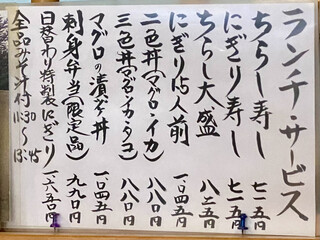 ランチ・サービス
ちらし寿し 七一五円
にぎり寿し 七一五円
ちらし大盛 八二五円
にぎり1.5人前 一〇四五円
二色丼(マグロ・イカ) 八八〇円
三色丼(マグロ・イカ・タコ) 八八〇円
マグロの漬け丼 一〇四五円
刺身弁当(限定品) 九九〇円
日替わり特製にぎり 一六五〇円
全品みそ汁付 11:30〜13:45